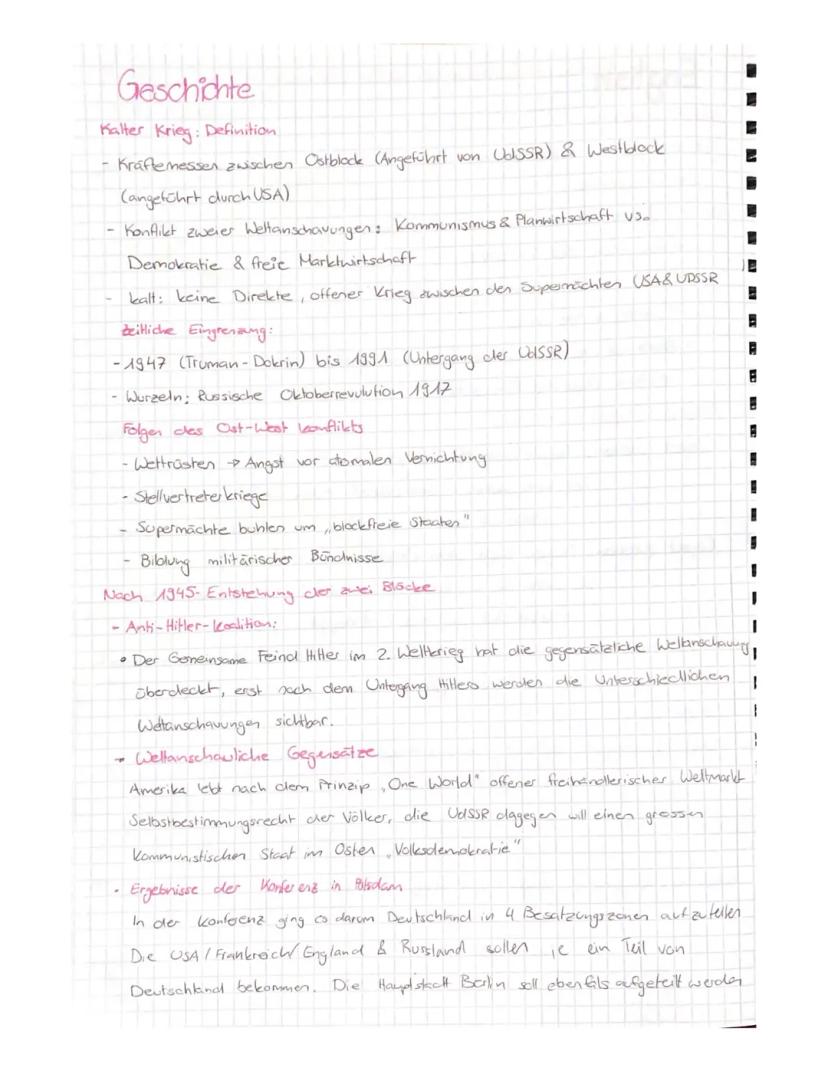 Geschichte
Kalter Krieg: Definition
- Kräftemessen zwischen Ostblock (Angeführt von UdSSR) & Westblock
(angeführt durch USA)
- Konflikt zweier Weltanschauungen: Kommunismus & Planwirtschaft vs.
Demokratie & freie Marktwirtschaft
- kalt: keine Direkte, offener Krieg zwischen den Supermächten USA & UDSSR
Zeitliche Eingrenzung:
- 1947 (Truman-Dokrin) bis 1991 (Untergang der UdSSR)
- Wurzeln: Russische Oktoberrevulution 1917
Folgen des Ost-West konflikts
- Wettrüsten → Angst vor atomalen Vernichtung
- Stellvertreterkriege
- Supermächte buhlen um „blockfreie Staaten"
- Bildung militärischer Bündnisse
Nach 1945- Entstehung der zwei Blöcke
- Anti-Hitler-Koalition:
• Der Gemeinsame Feind Hitler im 2. Weltkrieg hat die gegensätzliche Weltanschauung
überdeckt, erst nach dem Untergang Hitlers werden die Unterschiedlichen
Weltanschauungen sichtbar.
• Weltanschauliche Gegensätze
Amerika lebt nach dem Prinzip „One World" offener freihändlerischer Weltmarkt
Selbstbestimmungsrecht der Völker, die UdSSR dagegen will einen grossen
Kommunistischen Staat im Osten „Volksdemokratie"
• Ergebnisse der Konferenz in Potsdam
In der Konferenz ging es darum Deutschland in 4 Besatzungszonen aufzuteilen
Die USA / Frankreich / England & Russland sollen je ein Teil von
Deutschland bekommen. Die Hauptstadt Berlin soll ebenfals aufgeteilt werden